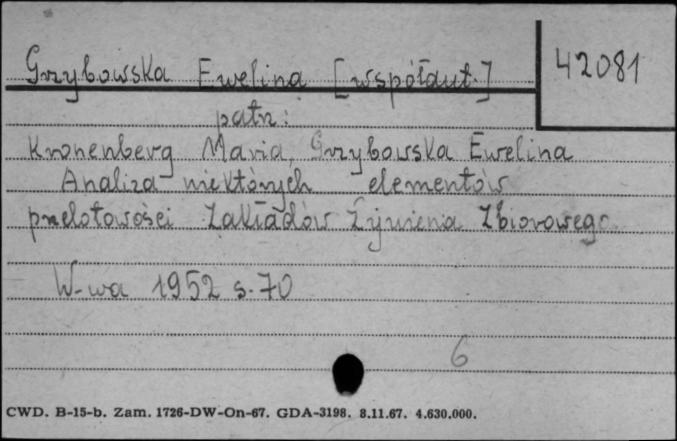 Grzybowska Ewelina [współaut.]
42081
patrz:
Kronenberg Maria, Grzybowska Ewelina
Analiza niektórych elementów
przelotowości Zakładów Żywienia Zbiorowego
W-wa 1952 s. 70
6
CWD. B-15-b. Zam. 1726-DW-On-67. GDA-3198. 8.11.67. 4.630.000.